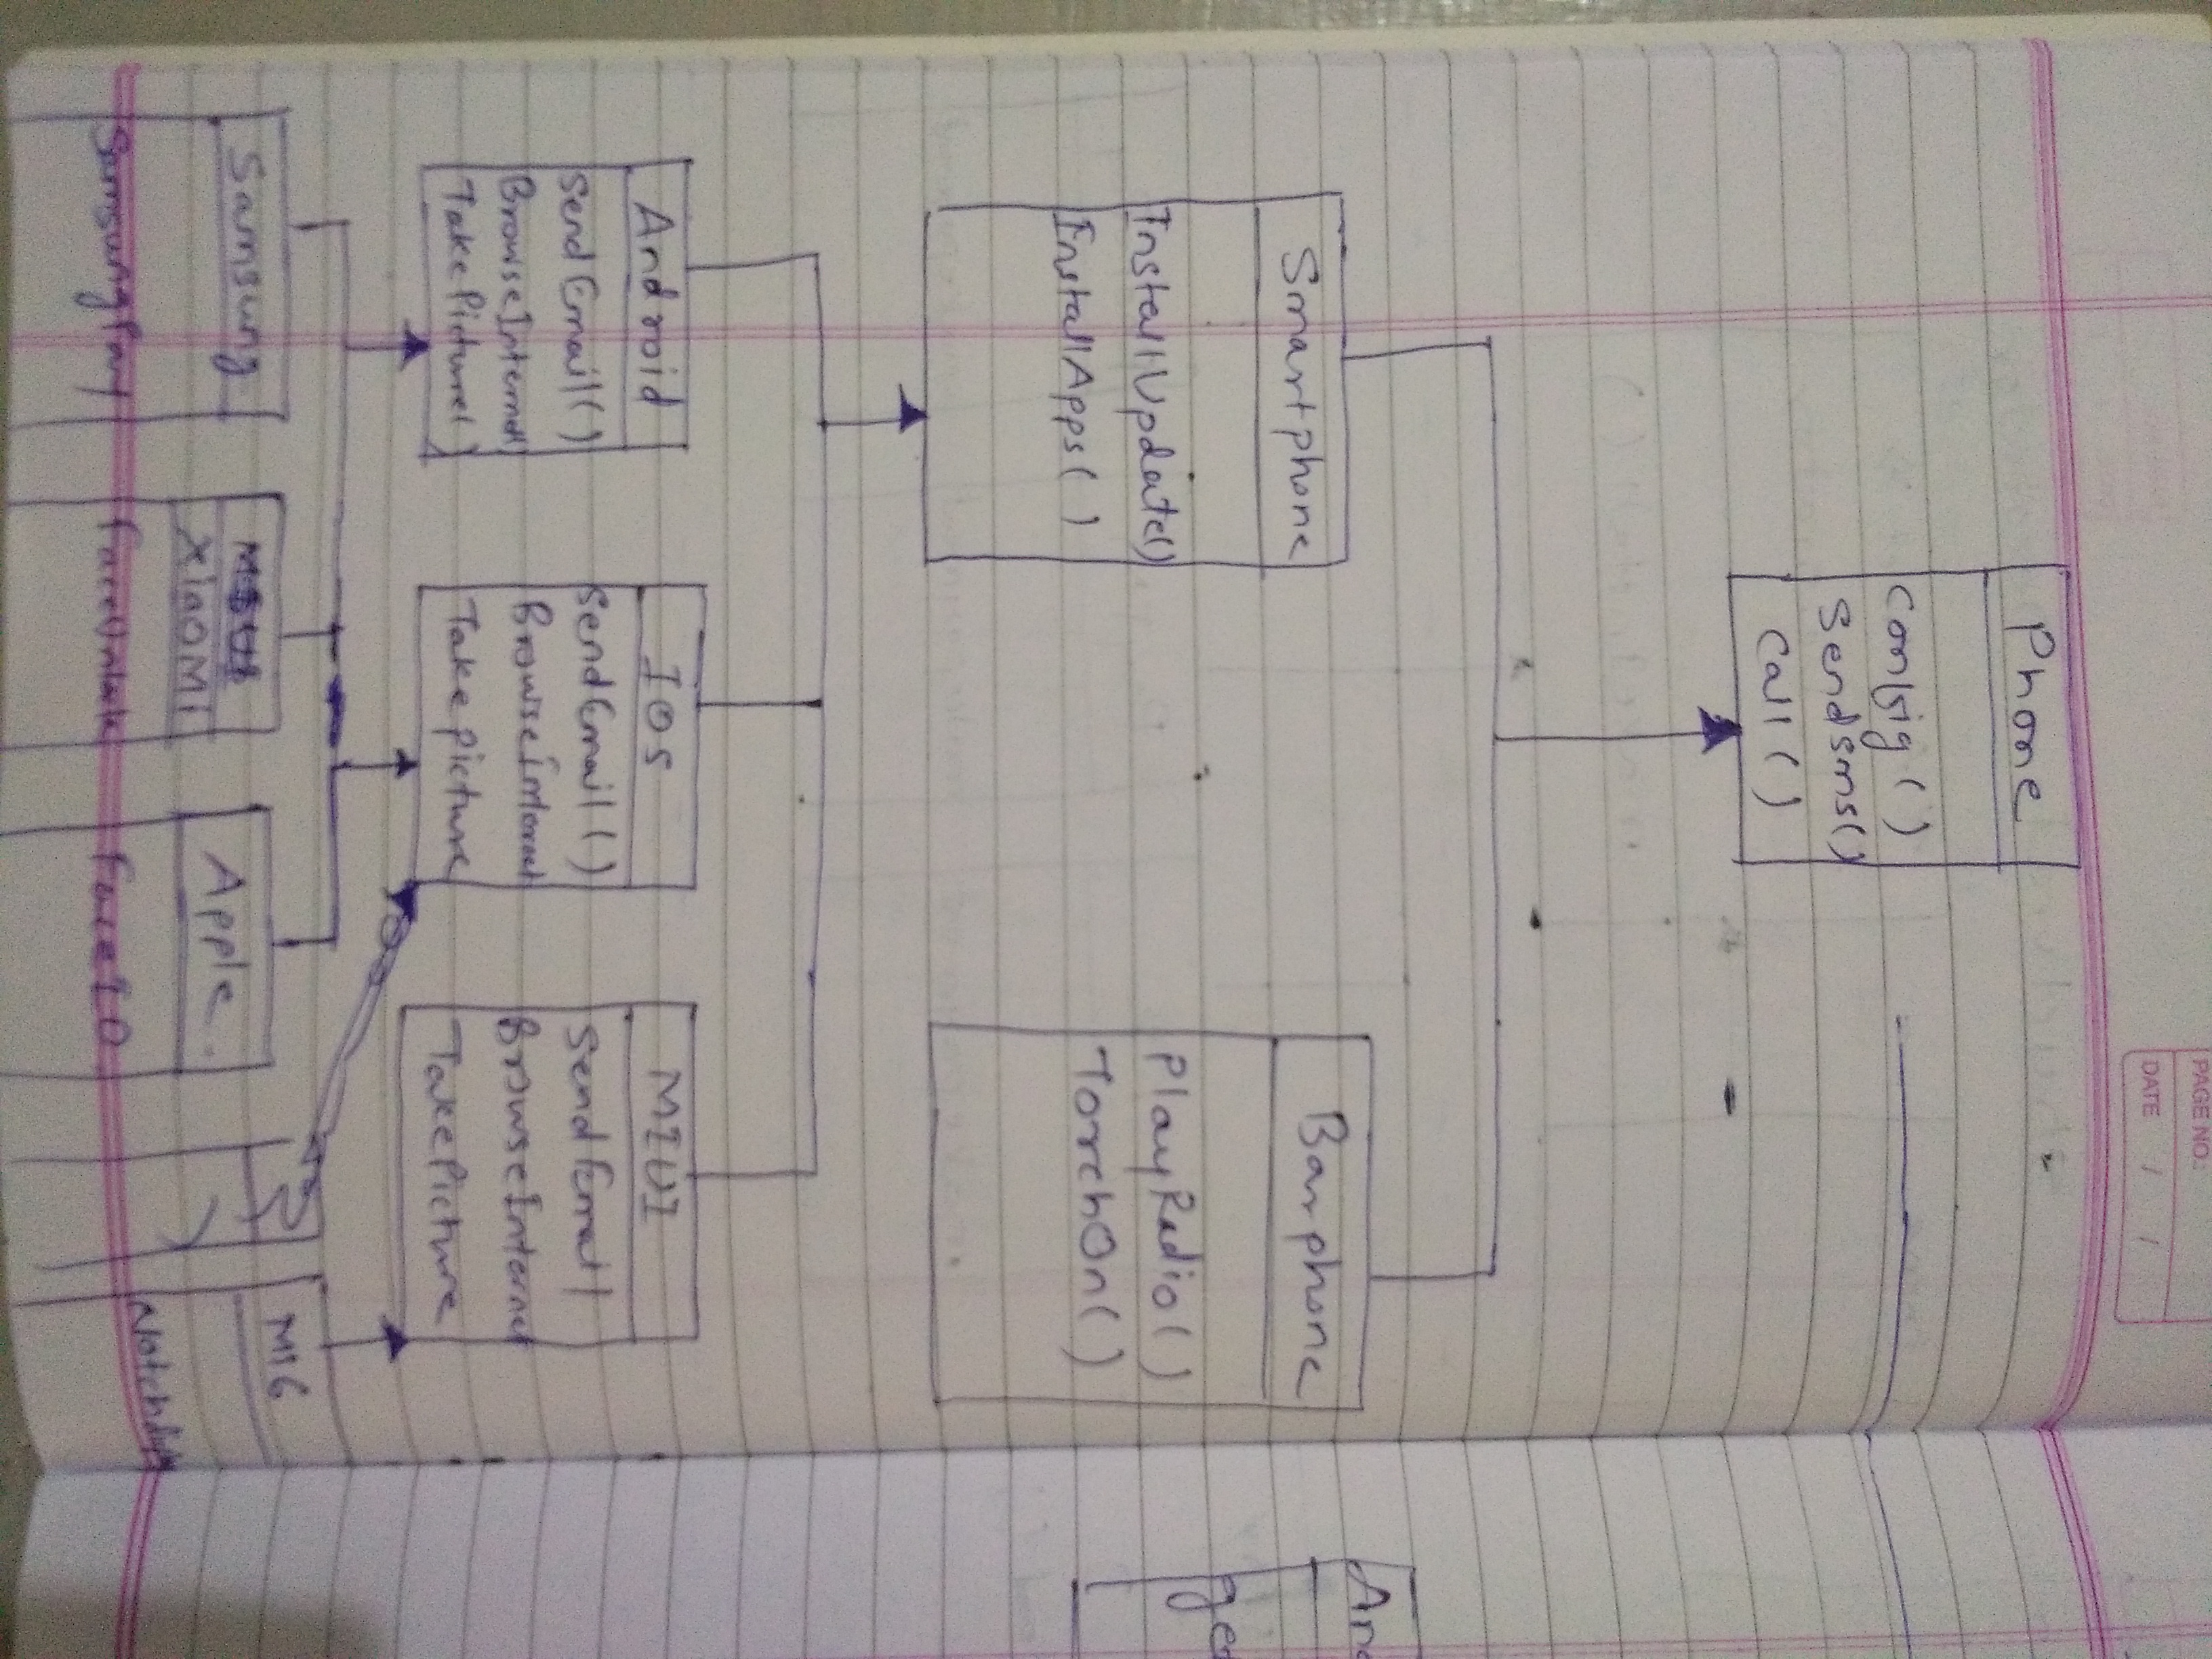 PAGE NO.:
DATE / /
Phone
Config ( )
Send sms()
Call ( )
Smartphone
InstallUpdate()
InstallApps( )
Barphone
PlayRadio( )
TorchOn( )
Android
SendEmail( )
BrowseInternet(
TakePicture( )
IOS
SendEmail( )
BrowseInternet
Take picture
MIUI
Send Email
BrowseInternet
TakePicture
Samsung
SamsungPay
XIAOMI
FaceUnlock
Apple.
Face ID
MI6